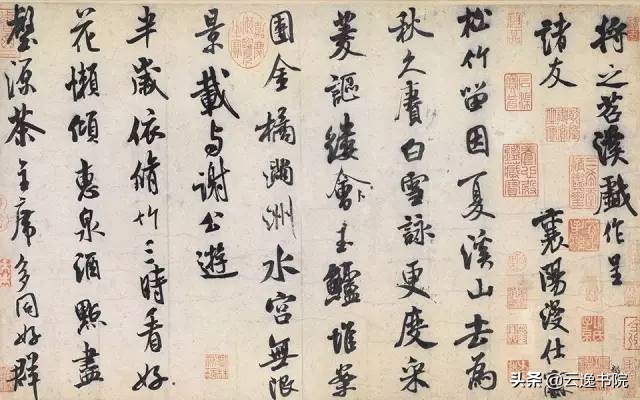 将之苕溪戲作呈
諸友 襄陽漫仕黻
松竹留因夏溪山去為
秋久賡白雪詠更度采
菱謳縷會玉鱸堆案
團金橘滿洲水宫無限
景載与謝公遊
半歲依脩竹三時看好
花懶傾惠泉酒點盡
壑源茶主席多同好群
头条 @云逸书院